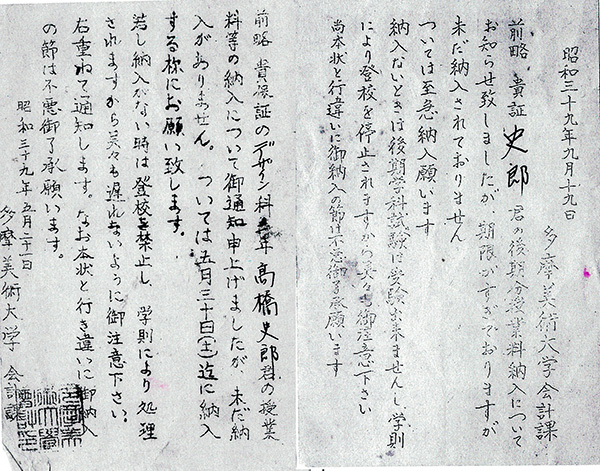 昭和三十九年九月十九日
多摩美術大学会計課
前略 貴証 史郎 君の後期分授業料納入について
お知らせ致しましたが、期限がすぎておりますが
未だ納入されておりません
ついては至急納入願います
納入ないときは後期学科試験は受験出来ませんし学則
により登校を停止されますから呉々も御注意下さい
尚本状と行違いに御納入の節は不悪御了承願います
前略 貴保証のデザイン科 年 高橋史郎君の授業
料等の納入について御通知申上げましたが、未だ納
入がありません。ついては五月三十日(土)迄に納入
する様にお願い致します。
若し納入がない時は登校を禁止し、学則により処理
されますから呉々も遅れないように御注意下さい。
右重ねて通知します。なお本状と行き違いに御納入
の節は不悪御了承願います。
昭和三十九年五月二十一日
多摩美術大学 会計課